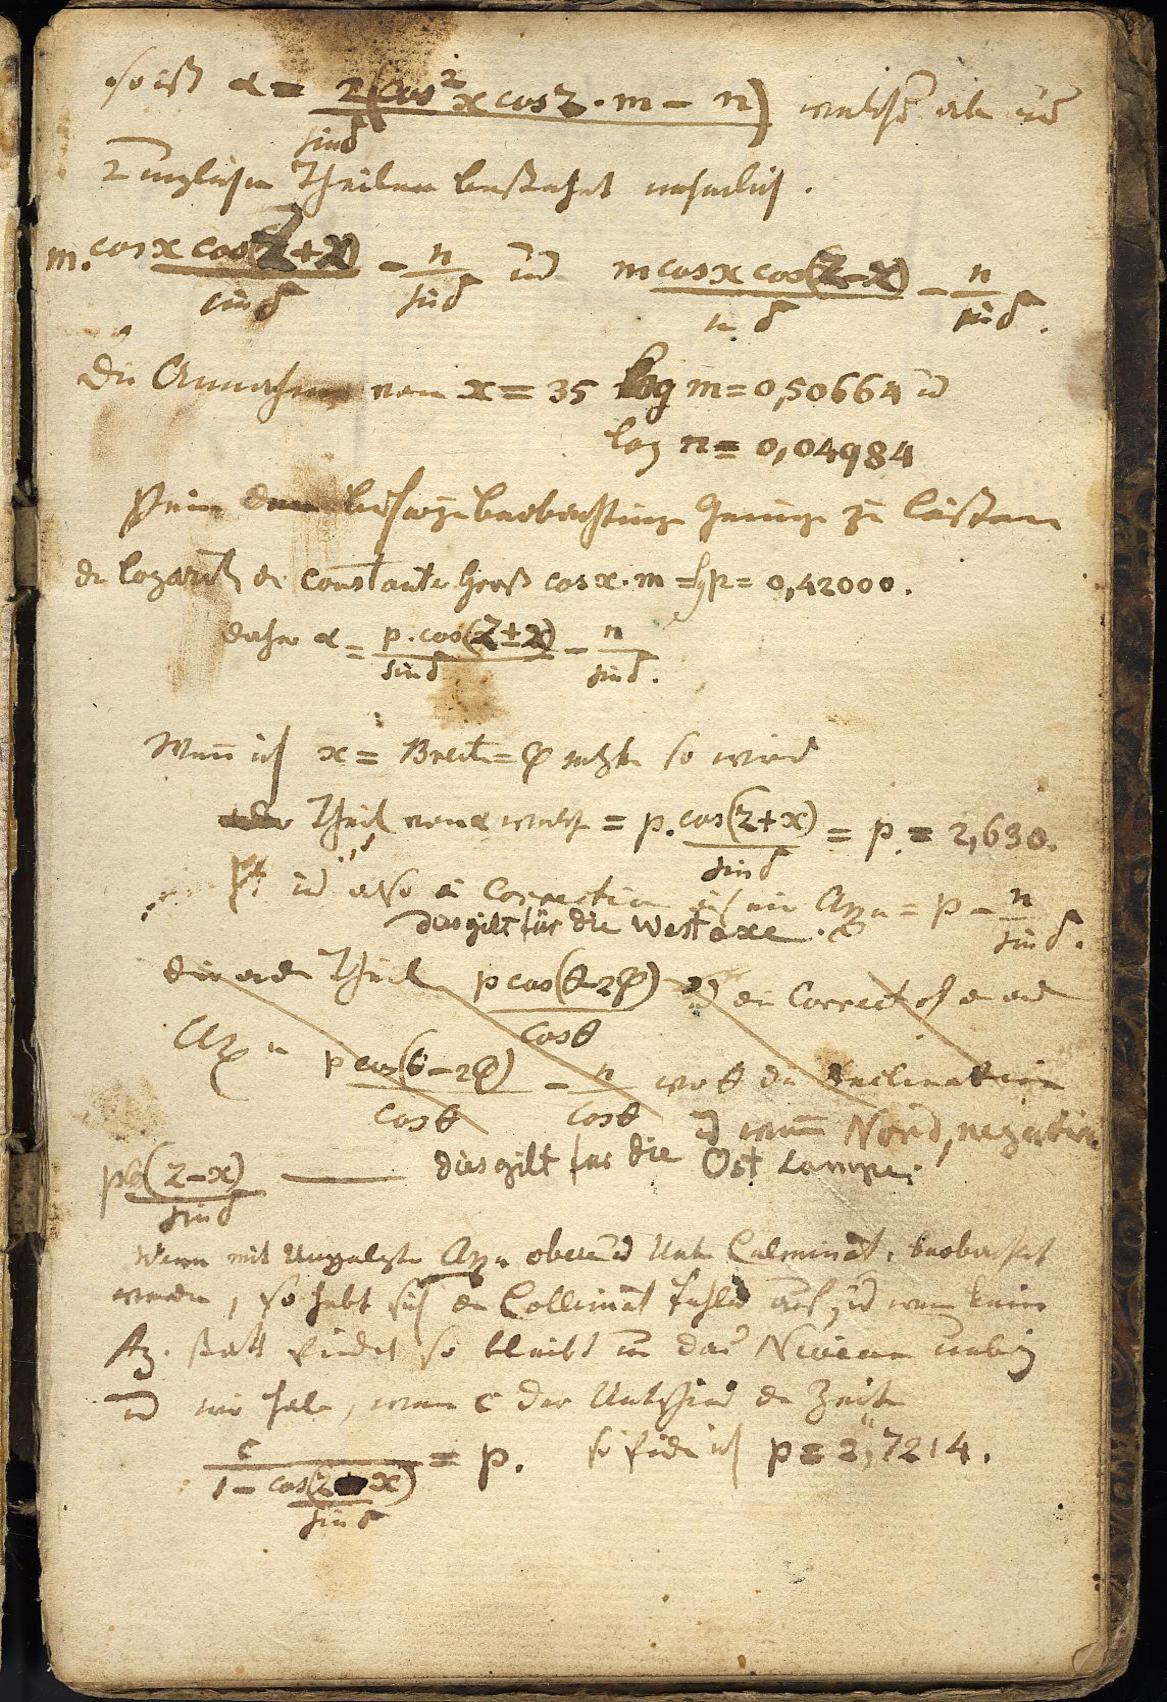 so ist α = 2(cos² x cos z · m − n) / sin δ welches als
2 ungleichen Theilen bestehet nehmlich.
m. cos x cos(z + x) / sin δ − n / sin δ und m cos x cos(z − x) / sin δ − n / sin δ.
Die Annahme von x = 35 log m = 0,50664 und
log n = 0,04984
Beobachtung Genüge zu leisten
der Logarith der constante Groß cos x · m = p = 0,42000.
daher α = p · cos(z ± x) / sin δ − n / sin δ.
Wenn ich x = Breite = φ setzte so wird
Theil von α = p. cos(z + x) / sin δ = p. = 2,630.
und also Correction Az = p − n / sin δ.
dies gilt für die West axe.
der andre Theil p cos(θ − 2φ) / cos θ die Correct
Az p cos(θ − 2φ) / cos θ − n / cos θ wo θ die Inclination
und wenn Nord, negativ.
p (z − x) / sin δ —— dies gilt für die Ost Lampe.
Wenn mit Umgelegte Axe obere und Unte Culminat. beobachtet
werden, so hebt sich der Collimat Fehler auf, und wenn kein
Az. statt findet so bleibt das Niveau übrig
und wir habe, wenn c der Unterschied der Zeite
c / 1 − cos(z x) / sin δ = p. so finde ich p = 2",7214.